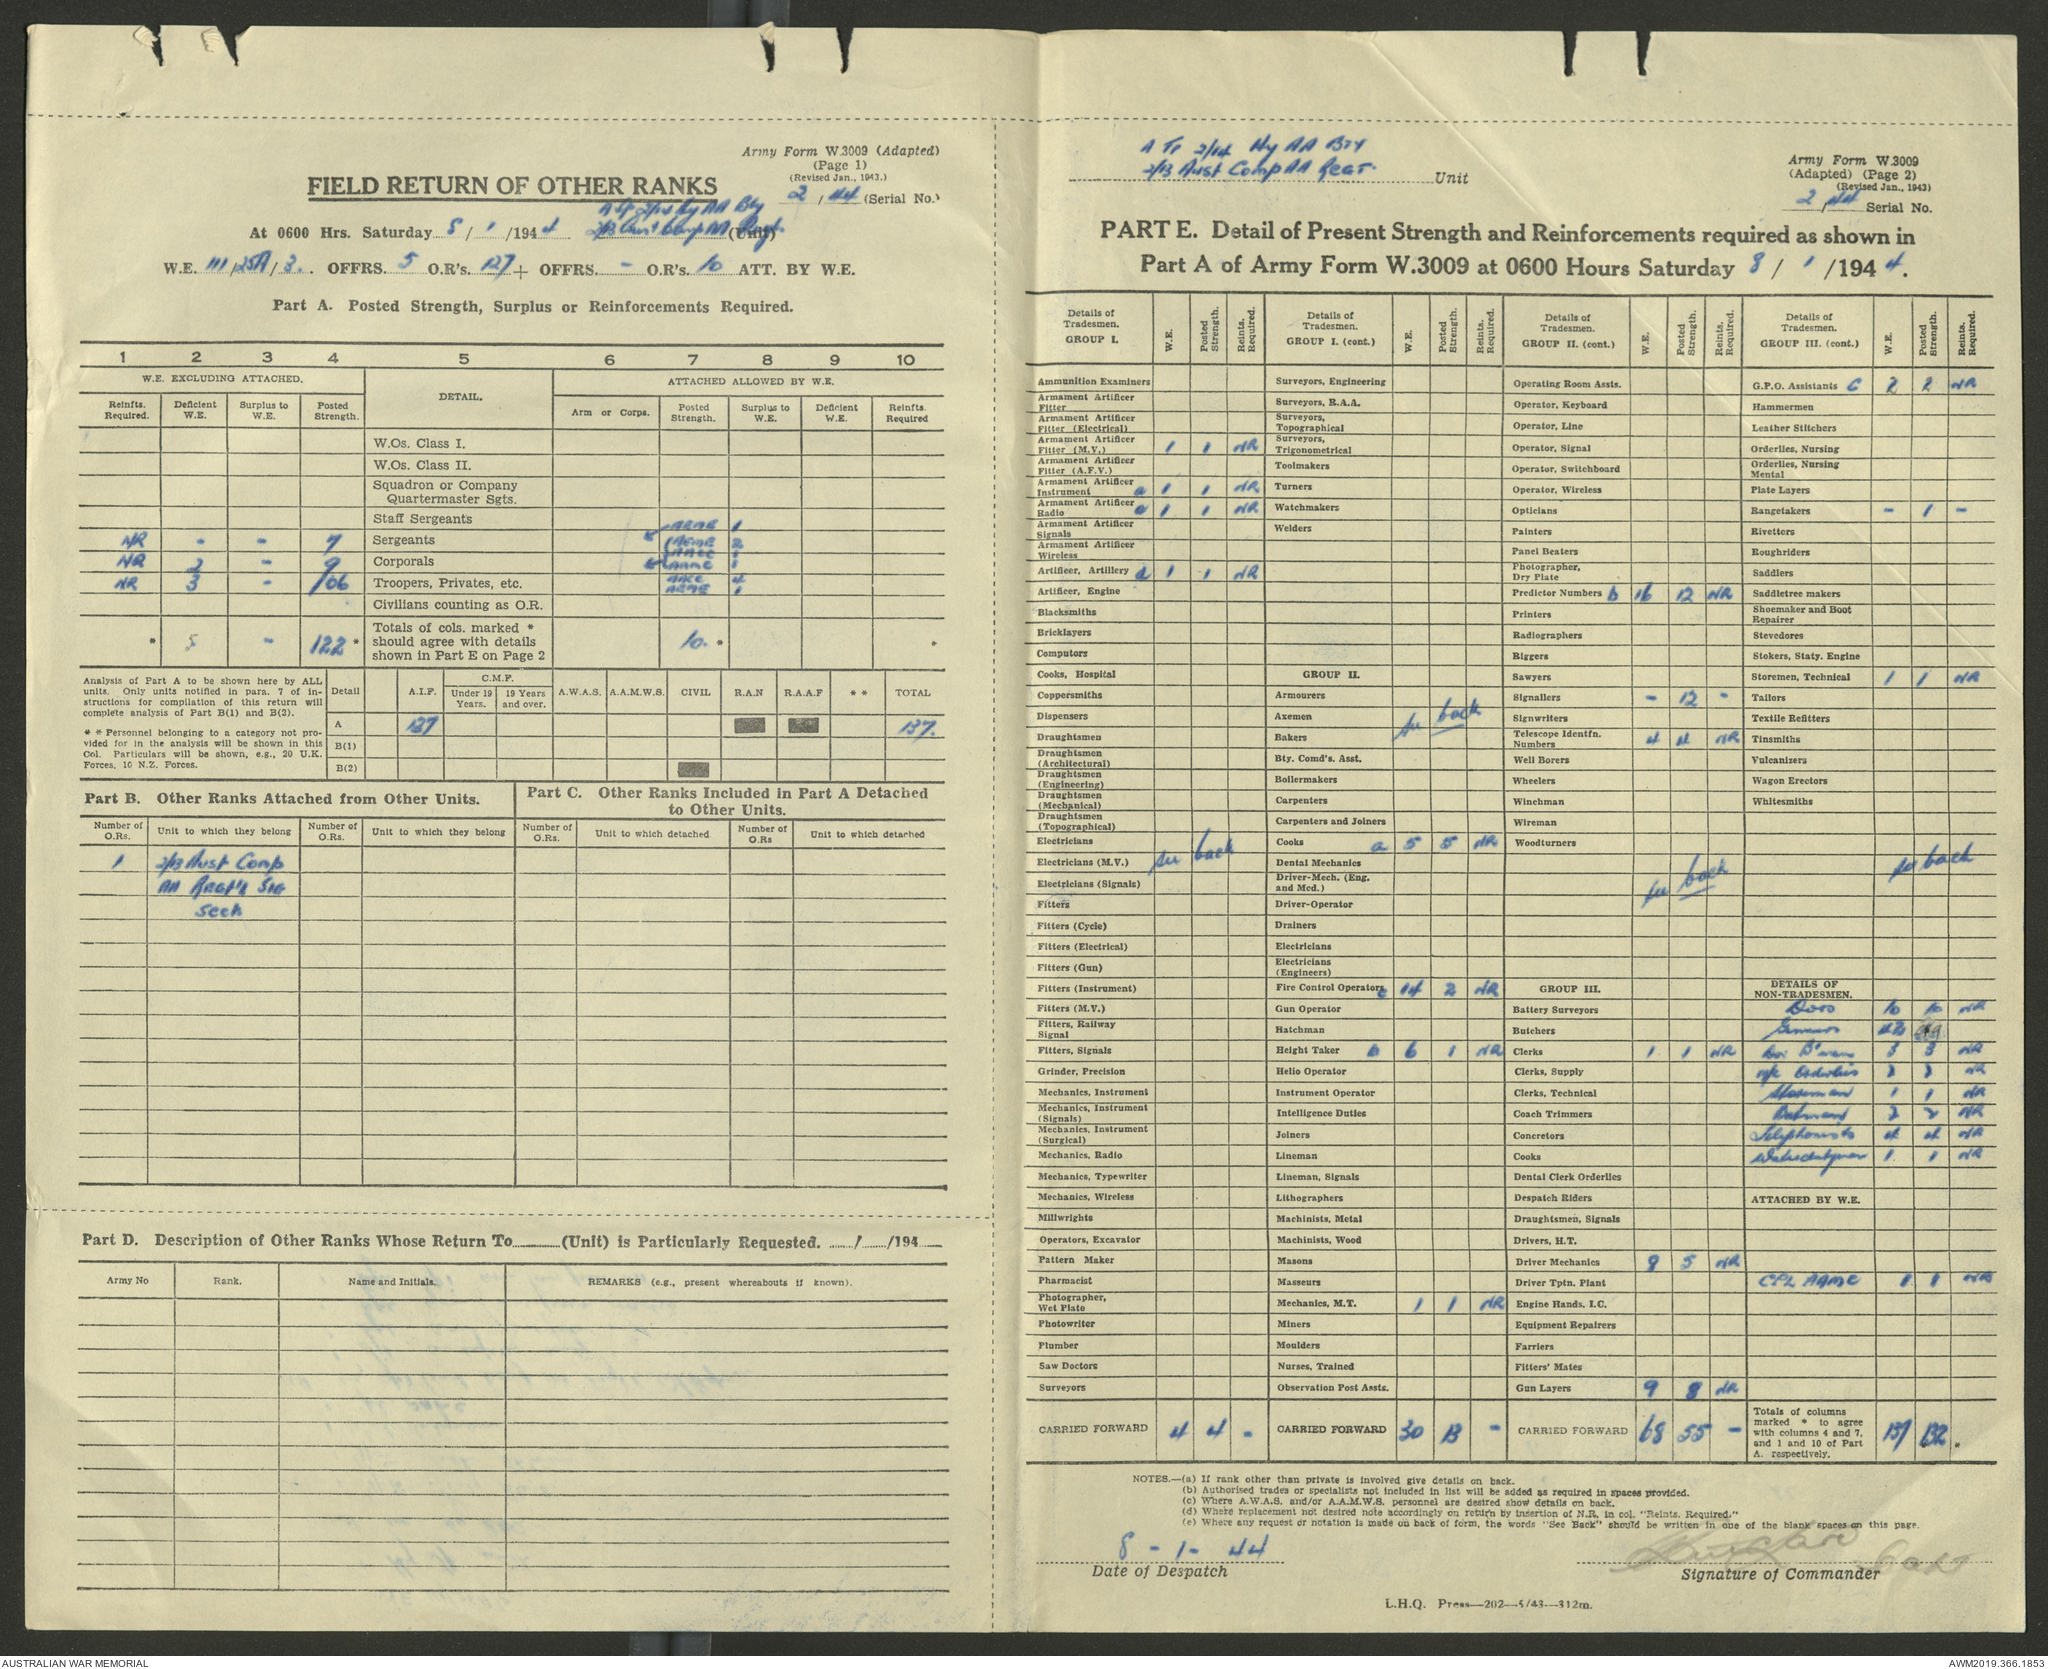 Army Form W.3009 (Adapted)
(Page 1)
(Revised Jan., 1943.)
FIELD RETURN OF OTHER RANKS
2 / 44 (Serial No.)
A Tp 2/14 Hy AA Bty
At 0600 Hrs. Saturday 8 / 1 /1944 2/13 Aust Comp AA Regt (Unit)
W.E. 111/25A/3. OFFRS. 5 O.R's. 127 + OFFRS. - O.R's. 10 ATT. BY W.E.
Part A. Posted Strength, Surplus or Reinforcements Required.
1 2 3 4 5 6 7 8 9 10
W.E. EXCLUDING ATTACHED. DETAIL. ATTACHED ALLOWED BY W.E.
Reinfts. Required. Deficient W.E. Surplus to W.E. Posted Strength. Arm or Corps. Posted Strength. Surplus to W.E. Deficient W.E. Reinfts. Required
W.Os. Class I.
W.Os. Class II.
Squadron or Company Quartermaster Sgts.
Staff Sergeants AEME 1
NR - - 7 Sergeants AEME 2
NR 2 - 9 Corporals AAMC 1
NR 3 - 106 Troopers, Privates, etc. AACC 4
AEME 1
Civilians counting as O.R.
* 5 - 122 * Totals of cols. marked * should agree with details shown in Part E on Page 2 10. * *
Analysis of Part A to be shown here by ALL units. Only units notified in para. 7 of instructions for compilation of this return will complete analysis of Part B(1) and B(2).
* * Personnel belonging to a category not provided for in the analysis will be shown in this Col. Particulars will be shown, e.g., 20 U.K. Forces, 10 N.Z. Forces.
Detail A.I.F. C.M.F. Under 19 Years. 19 Years and over. A.W.A.S. A.A.M.W.S. CIVIL R.A.N R.A.A.F * * TOTAL
A 137 137.
B(1)
B(2)
Part B. Other Ranks Attached from Other Units.
Part C. Other Ranks Included in Part A Detached to Other Units.
Number of O.Rs. Unit to which they belong Number of O.Rs. Unit to which they belong Number of O.Rs. Unit to which detached Number of O.Rs Unit to which detached
1 2/13 Aust Comp
AA Regt's Sig
Sect
Part D. Description of Other Ranks Whose Return To (Unit) is Particularly Requested. / /194
Army No Rank. Name and Initials. REMARKS (e.g., present whereabouts if known).
A Tp 2/14 Hy AA Bty
2/13 Aust Comp AA Regt. Unit
Army Form W.3009
(Adapted) (Page 2)
(Revised Jan., 1943)
2/44 Serial No.
PART E. Detail of Present Strength and Reinforcements required as shown in
Part A of Army Form W.3009 at 0600 Hours Saturday 8 / 1 /1944.
Details of Tradesmen. GROUP I. W.E. Posted Strength. Reints. Required.
Ammunition Examiners
Armament Artificer Fitter
Armament Artificer Fitter (Electrical)
Armament Artificer Fitter (M.V.) 1 1 NR
Armament Artificer Fitter (A.F.V.)
Armament Artificer Instrument a 1 1 NR
Armament Artificer Radio a 1 1 NR
Armament Artificer Signals
Armament Artificer Wireless
Artificer, Artillery a 1 1 NR
Artificer, Engine
Blacksmiths
Bricklayers
Computors
Cooks, Hospital
Coppersmiths
Dispensers
Draughtsmen
Draughtsmen (Architectural)
Draughtsmen (Engineering)
Draughtsmen (Mechanical)
Draughtsmen (Topographical)
Electricians
Electricians (M.V.) see back
Electricians (Signals)
Fitters
Fitters (Cycle)
Fitters (Electrical)
Fitters (Gun)
Fitters (Instrument)
Fitters (M.V.)
Fitters, Railway Signal
Fitters, Signals
Grinder, Precision
Mechanics, Instrument
Mechanics, Instrument (Signals)
Mechanics, Instrument (Surgical)
Mechanics, Radio
Mechanics, Typewriter
Mechanics, Wireless
Millwrights
Operators, Excavator
Pattern Maker
Pharmacist
Photographer, Wet Plate
Photowriter
Plumber
Saw Doctors
Surveyors
CARRIED FORWARD 4 4 -
Details of Tradesmen. GROUP I. (cont.) W.E. Posted Strength. Reints. Required.
Surveyors, Engineering
Surveyors, R.A.A.
Surveyors, Topographical
Surveyors, Trigonometrical
Toolmakers
Turners
Watchmakers
Welders
GROUP II.
Armourers
Axemen see back
Bakers
Bty. Comd's. Asst.
Boilermakers
Carpenters
Carpenters and Joiners
Cooks a 5 5 NR
Dental Mechanics
Driver-Mech. (Eng. and Med.)
Driver-Operator
Drainers
Electricians
Electricians (Engineers)
Fire Control Operators c 14 2 NR
Gun Operator
Hatchman
Height Taker b 6 1 NR
Helio Operator
Instrument Operator
Intelligence Duties
Joiners
Lineman
Lineman, Signals
Lithographers
Machinists, Metal
Machinists, Wood
Masons
Masseurs
Mechanics, M.T. 1 1 NR
Miners
Moulders
Nurses, Trained
Observation Post Assts.
CARRIED FORWARD 30 13 -
Details of Tradesmen. GROUP II. (cont.) W.E. Posted Strength. Reints. Required.
Operating Room Assts.
Operator, Keyboard
Operator, Line
Operator, Signal
Operator, Switchboard
Operator, Wireless
Opticians
Painters
Panel Beaters
Photographer, Dry Plate
Predictor Numbers b 16 12 NR
Printers
Radiographers
Riggers
Sawyers
Signallers - 12 -
Signwriters
Telescope Identfn. Numbers 4 4 NR
Well Borers
Wheelers
Winchman
Wireman
Woodturners
see back
GROUP III.
Battery Surveyors
Butchers
Clerks 1 1 NR
Clerks, Supply
Clerks, Technical
Coach Trimmers
Concretors
Cooks
Dental Clerk Orderlies
Despatch Riders
Draughtsmen, Signals
Drivers, H.T.
Driver Mechanics 8 5 NR
Driver Tptn. Plant
Engine Hands, I.C.
Equipment Repairers
Farriers
Fitters' Mates
Gun Layers 9 8 NR
CARRIED FORWARD 68 55 -
Details of Tradesmen. GROUP III. (cont.) W.E. Posted Strength. Reints. Required.
G.P.O. Assistants C 2 2 NR
Hammermen
Leather Stitchers
Orderlies, Nursing
Orderlies, Nursing Mental
Plate Layers
Rangetakers - 1 -
Rivetters
Roughriders
Saddlers
Saddletree makers
Shoemaker and Boot Repairer
Stevedores
Stokers, Staty. Engine
Storemen, Technical 1 1 NR
Tailors
Textile Refitters
Tinsmiths
Vulcanizers
Wagon Erectors
Whitesmiths
see back
DETAILS OF NON-TRADESMEN.
10 10 NR
Gunners
3 3 NR
m/c Orderlies NR
Storeman 1 1 NR
Batmen 2 2 NR
Telephonists 4 4 NR
Waterdutymen 1 1 NR
ATTACHED BY W.E.
CPL AAMC 1 1 NR
Totals of columns marked * to agree with columns 4 and 7, and 1 and 10 of Part A. respectively. 137 132 *
NOTES.—(a) If rank other than private is involved give details on back.
(b) Authorised trades or specialists not included in list will be added as required in spaces provided.
(c) Where A.W.A.S. and/or A.A.M.W.S. personnel are desired show details on back.
(d) Where replacement not desired note accordingly on return by insertion of N.R. in col. "Reints. Required."
(e) Where any request or notation is made on back of form, the words "See Back" should be written in one of the blank spaces on this page.
8 - 1 - 44
Date of Despatch
Capt
Signature of Commander
L.H.Q. Press—202—5/43—312m.
AUSTRALIAN WAR MEMORIAL
AWM2019.366.1853